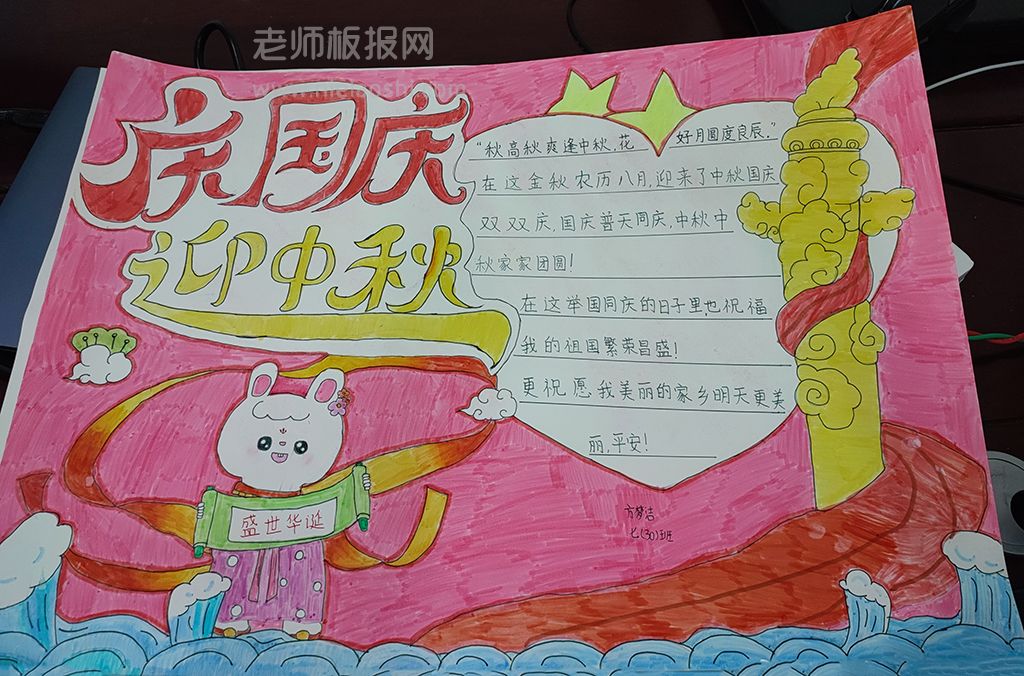 老师板报网
庆国庆
迎中秋
“秋高秋爽逢中秋,花好月圆度良辰.”
在这金秋农历八月,迎来了中秋国庆
双双庆,国庆普天同庆,中秋中
秋家家团圆!
在这举国同庆的日子里,也祝福
我的祖国繁荣昌盛!
更祝愿我美丽的家乡明天更美
丽,平安!
盛世华诞
方梦洁
七(30)班